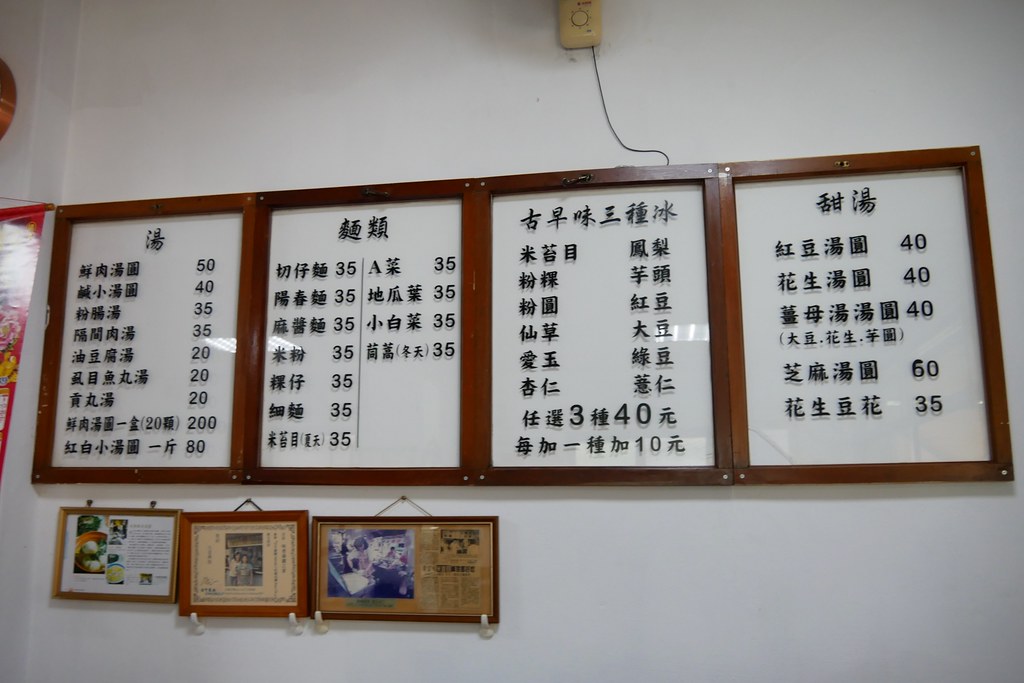 湯
鮮肉湯圓 50
鹹小湯圓 40
粉腸湯 35
隔間肉湯 35
油豆腐湯 20
虱目魚丸湯 20
貢丸湯 20
鮮肉湯圓一盒(20顆) 200
紅白小湯圓 一斤 80
麵類
切仔麵 35
陽春麵 35
麻醬麵 35
米粉 35
粿仔 35
細麵 35
米苔目(夏天) 35
A菜 35
地瓜葉 35
小白菜 35
茼蒿(冬天) 35
古早味三種冰
米苔目 鳳梨
粉粿 芋頭
粉圓 紅豆
仙草 大豆
愛玉 綠豆
杏仁 薏仁
任選3種40元
每加一種加10元
甜湯
紅豆湯圓 40
花生湯圓 40
薑母湯湯圓 40
(大豆.花生.芋圓)
芝麻湯圓 60
花生豆花 35